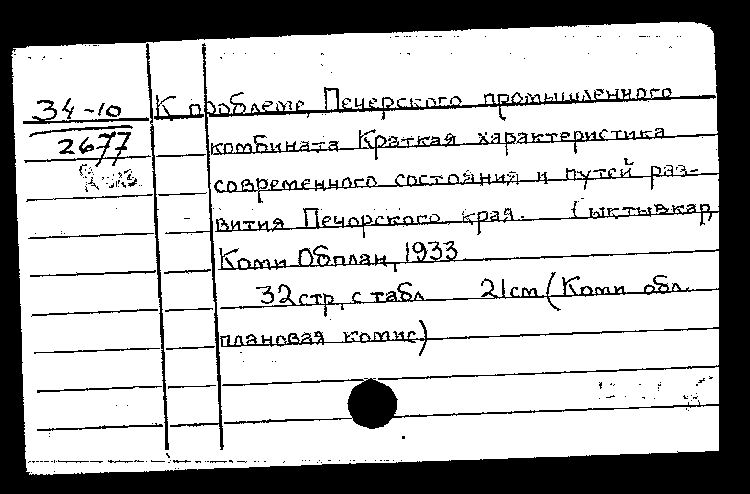 34-10 К проблеме Печерского промышленного
2677 комбината Краткая характеристика
современного состояния и путей раз-
вития Печорского края. Сыктывкар,
Коми Обплан, 1933
32 стр, с табл 21 см (Коми обл.
плановая комис)